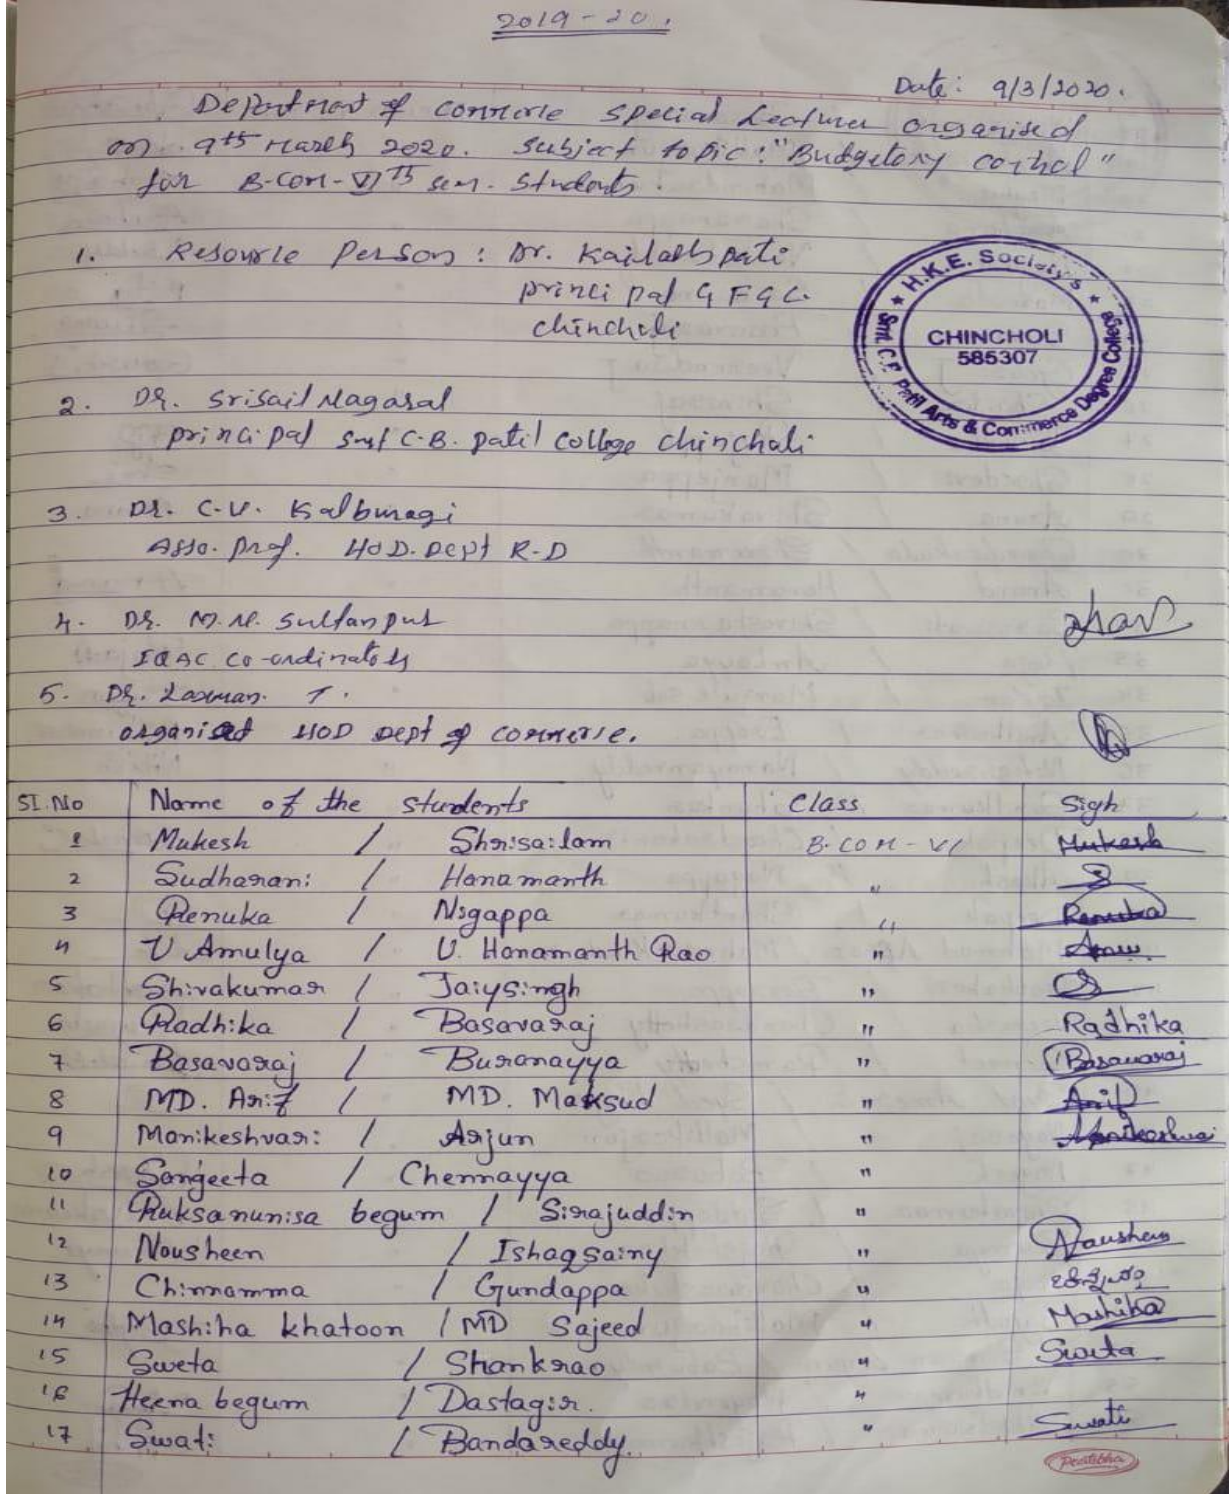 2019-20.
Date: 9/3/2020.
Department of commerce special Lecture organised
on 9th March 2020. Subject topic: "Budgetory control"
for B-com-VIth sem. Students.
1. Resource Person: Dr. Kailashpati
principal G F G C.
chincholi
H.K.E. Society's
CHINCHOLI
585307
Smt. C.B. Patil Arts & Commerce Degree College
2. Dr. Srisail Nagaral
principal smt C.B. patil College chincholi
3. Dr. C.V. Kalburagi
Asso. prof. HOD. Dept R-D
4. Dr. M.M. Sultanpur
IQAC co-ordinators
5. Dr. Laxman. T.
organised HOD Dept of commerce.
SI.No Name of the students Class Sigh
1 Mukesh / Shrisailam B.COM-VI Mukesh
2 Sudharani / Hanamanth "
3 Renuka / Nigappa " Renuka
4 V Amulya / V. Hanamanth Rao "
5 Shivakumar / Jaiysingh "
6 Radhika / Basavaraj " Radhika
7 Basavaraj / Buranayya " Basavaraj
8 MD. Arif / MD. Maksud " Arif
9 Manikeshvari / Arjun " Manikeshwai
10 Sangeeta / Chennayya "
11 Ruksanunisa begum / Sirajuddin "
12 Nousheen / Ishaqsainy " Nausheen
13 Chinnamma / Gundappa "
14 Mashiha khatoon / MD Sajeed " Mashika
15 Sweta / Shankrao " Sweta
16 Heena begum / Dastagir. "
17 Swati / Bandareddy. " Swati
Pratibha